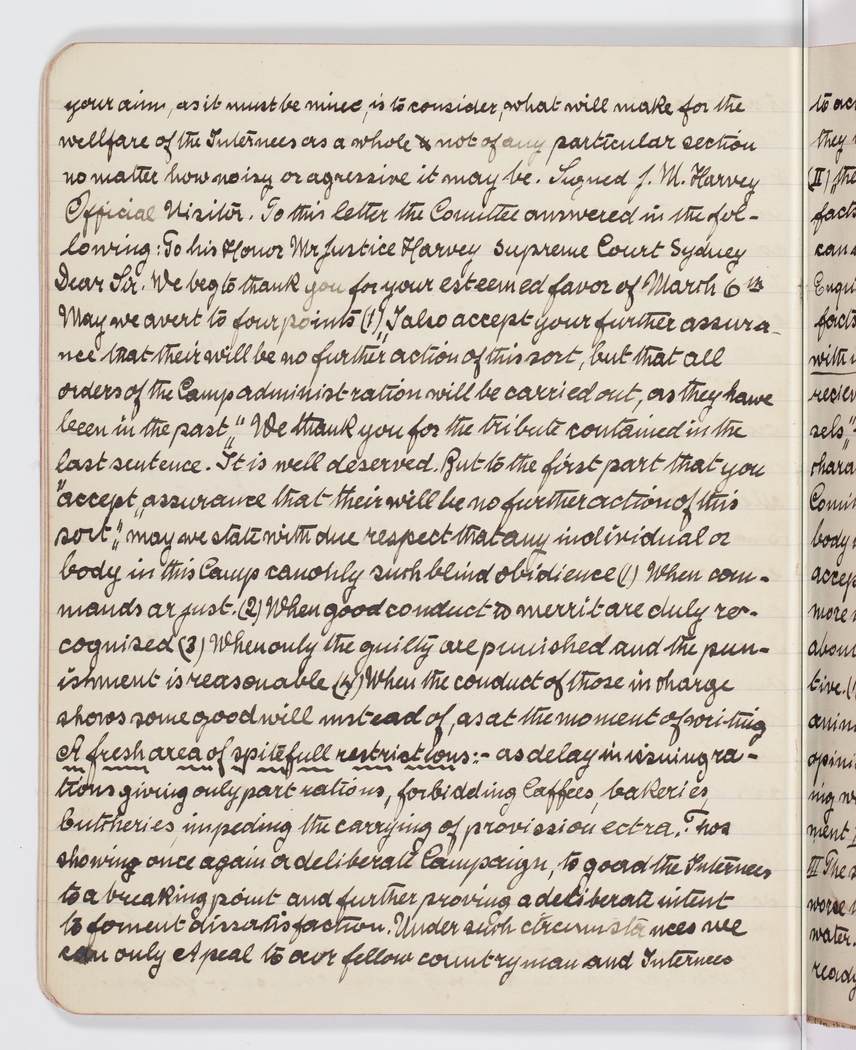 your aim, as it must be mine, is to consider, what will make for the
wellfare of the Internees as a whole & not of any particular section
no matter how noisy or agressive it may be. Signed J. M. Harvey
Official Visitor. To this letter the Comittee answered in the fol-
lowing: To his Honor Mr Justice Harvey Supreme Court Sydney
Dear Sir. We beg to thank you for your esteemed favor of March 6th
May we avert to four points (1) "I also accept your further assura-
nce that their will be no further action of this sort, but that all
orders of the Camp administration will be carried out, as they have
been in the past" We thank you for the tribute contained in the
last sentence. It is well deserved. But to the first part that you
"accept "assurance that their will be no further action of this
sort", may we state with due respect that any individual or
body in this Camp can only such blind obidience (1) When com-
mands ar just. (2) When good conduct & merrit are duly re-
cognised (3) When only the guilty are punished and the pun-
ishment is reasonable (4) When the conduct of those in charge
shows some good will instead of, as at the moment of writing
A fresh area of spitefull restrictions:- as delay in issuing ra-
tions giving only part rations, forbidding Caffees, bakeries,
butcheries, impeding the carrying of provission ectra. Thos
showing once again a deliberate Campaign, to goad the Internees
to a breaking point and further proving a deliberate intent
to foment dissatisfaction. Under such circumstances we
can only Apeal to our fellow countryman and Internees
to
they
(II) the
facts
can
Enqui
facts
with
reciev
sels"
chara
Comi
body
accep
more
abou
tive. (
anim
opini
ing w
ment
III The
worse
water.
ready